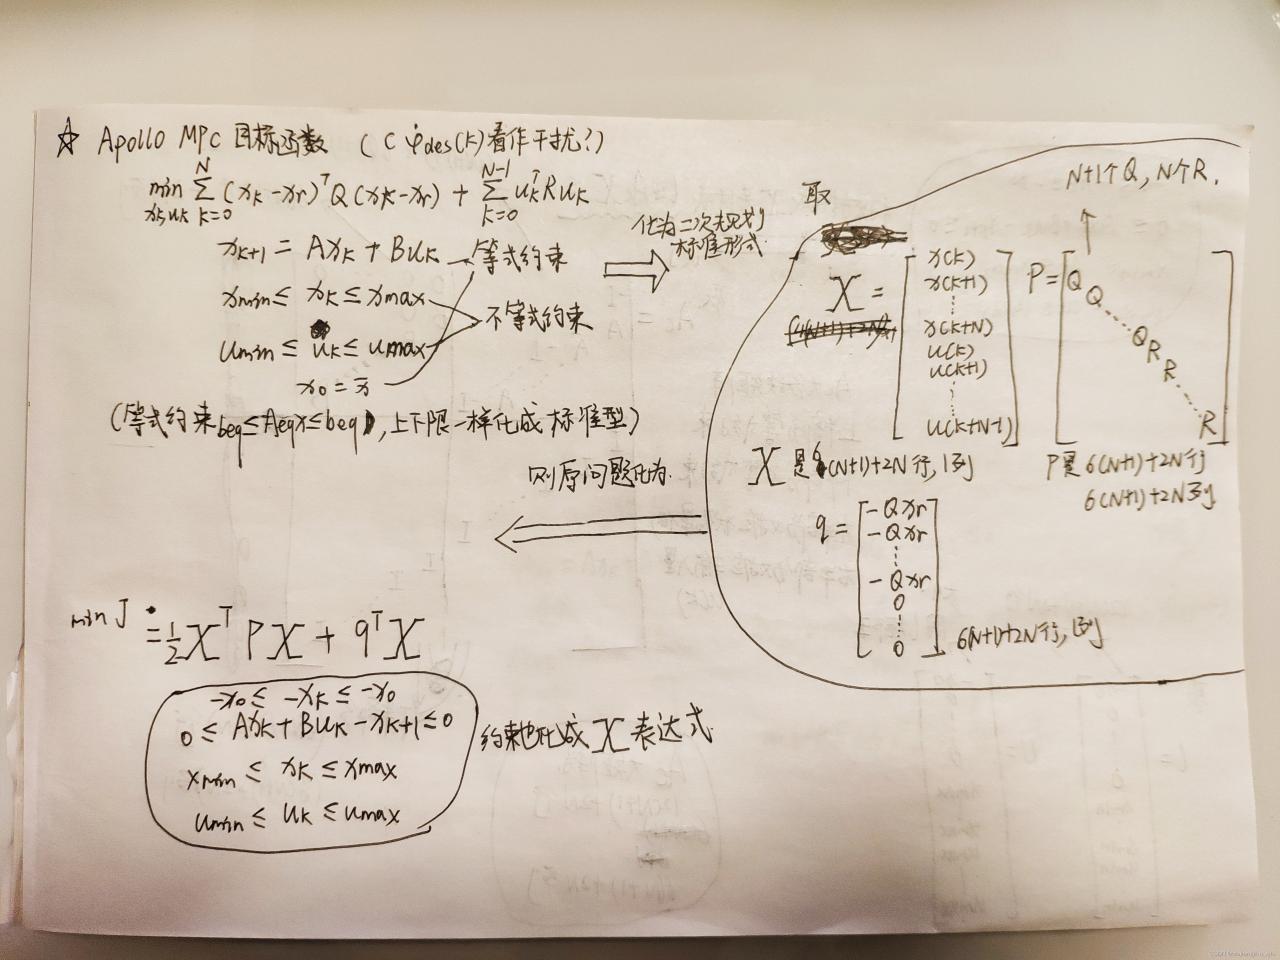 ☆ Apollo MPC 目标函数 (C φ̇des(k)看作干扰?)
min xk,uk N∑k=0 (xk-xr)ᵀQ(xk-xr) + N-1∑k=0 ukᵀRuk
xk+1 = Axk + Buk 等式约束
xmin ≤ xk ≤ xmax
不等式约束
umin ≤ uk ≤ umax
x0 = x̄
(等式约束beq≤Aeqx≤beq,上下限一样化成标准型)
化为二次规划
标准形式
取
N+1个Q, N个R.
X = [x(k) x(k+1) ⋮ x(k+N) u(k) u(k+1) ⋮ u(k+N-1)]
P = [Q Q ⋱ Q R R ⋱ R]
X 是6(N+1)+2N行,1列
P是6(N+1)+2N行
6(N+1)+2N列
q = [-Qxr -Qxr ⋮ -Qxr 0 ⋮ 0]
6(N+1)+2N行,1列
则原问题化为
min J = ½XᵀPX + qᵀX
-x0 ≤ -xk ≤ -x0
0 ≤ Axk+Buk-xk+1 ≤ 0
xmin ≤ xk ≤ xmax
umin ≤ uk ≤ umax
约束也化成X表达式